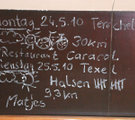 Montag 24.5.10 Terschel
30km
Restaurant Caracol
Dienstag 25.5.10 Texel
Halsen
3,3km
Matjes